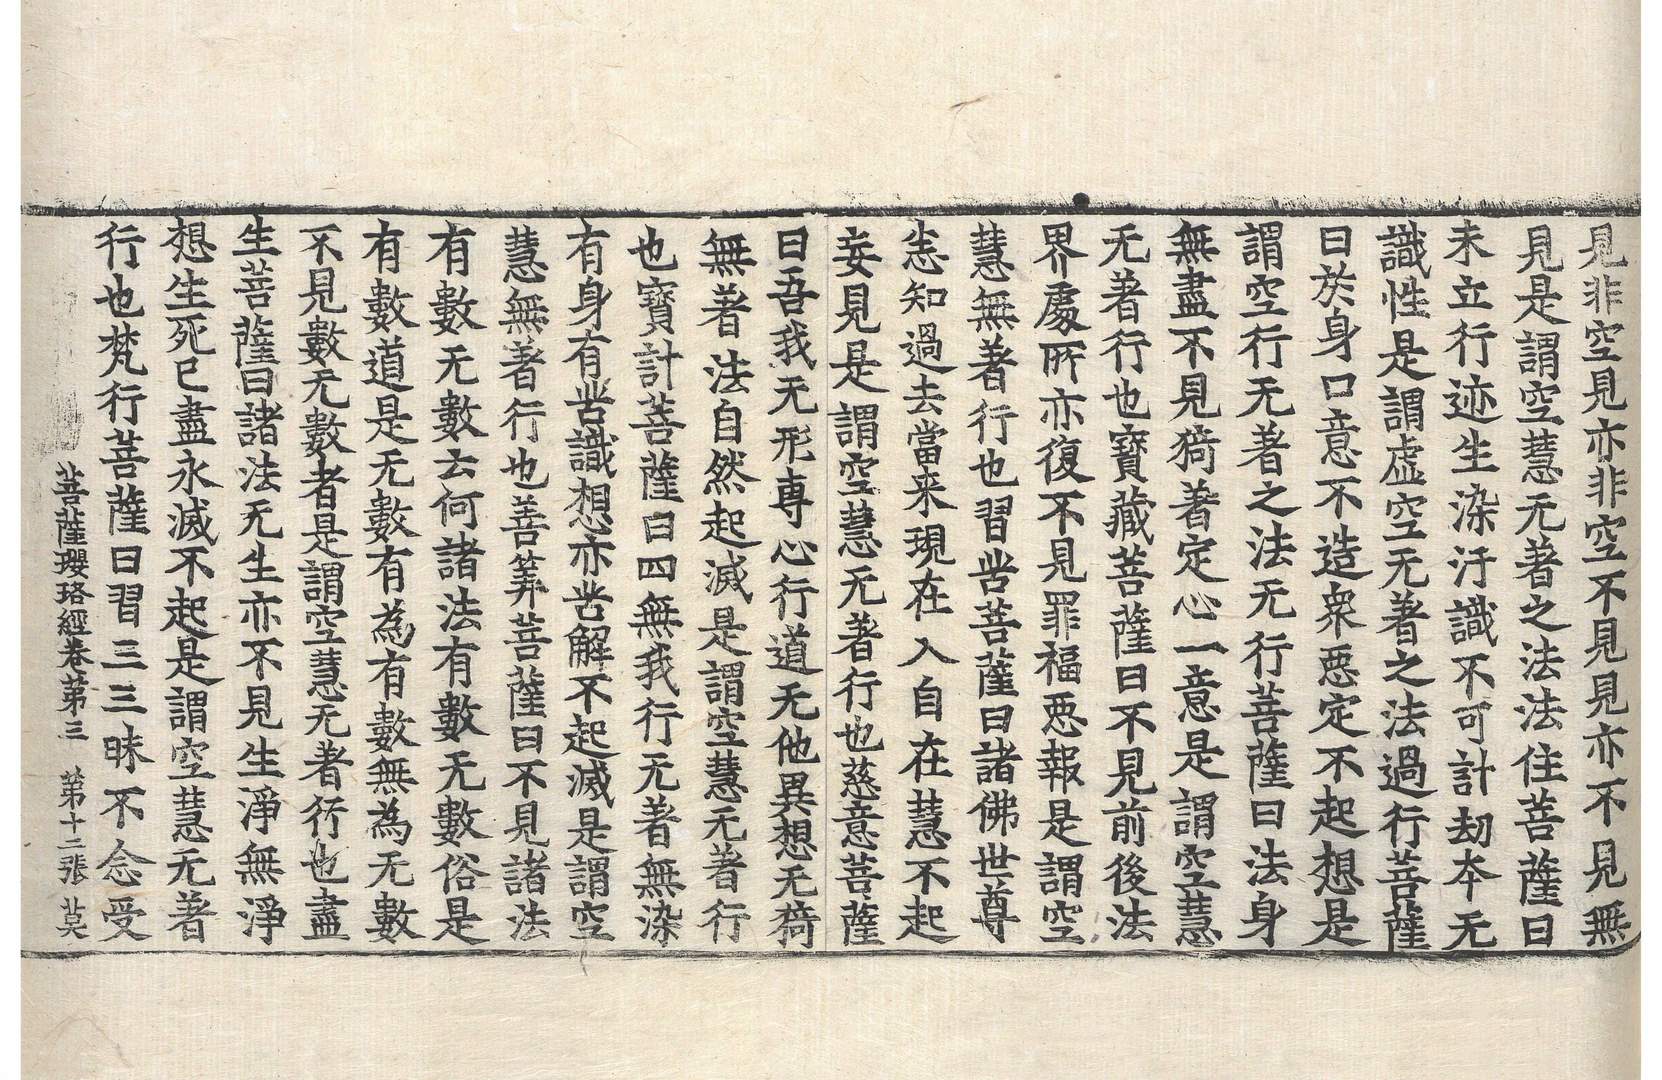 見非空見亦非空不見見亦不見無
見是謂空慧无著之法法住菩薩曰
未立行迹生染汙識不可計劫夲无
識性是謂虛空无著之法過行菩薩
曰於身口意不造衆惡定不起想是
謂空行无著之法无行菩薩曰法身
無盡不見猗著定心一意是謂空慧
无著行也寶藏菩薩曰不見前後法
界處所亦復不見罪福惡報是謂空
慧無著行也習苦菩薩曰諸佛世尊
悉知過去當来現在入自在慧不起
妄見是謂空慧无著行也慈意菩薩
曰吾我无形専心行道无他異想无猗
無著法自然起滅是謂空慧无著行
也寶計菩薩曰四無我行无著無染
有身有苦識想亦苦解不起滅是謂空
慧無著行也善筭菩薩曰不見諸法
有數无數云何諸法有數无數俗是
有數道是无數有為有數無為无數
不見數无數者是謂空慧无著行也盡
生菩薩曰諸法无生亦不見生淨無淨
想生死已盡永滅不起是謂空慧无著
行也梵行菩薩曰習三三昧不念受
菩薩瓔珞經卷第三　第十二張　莫